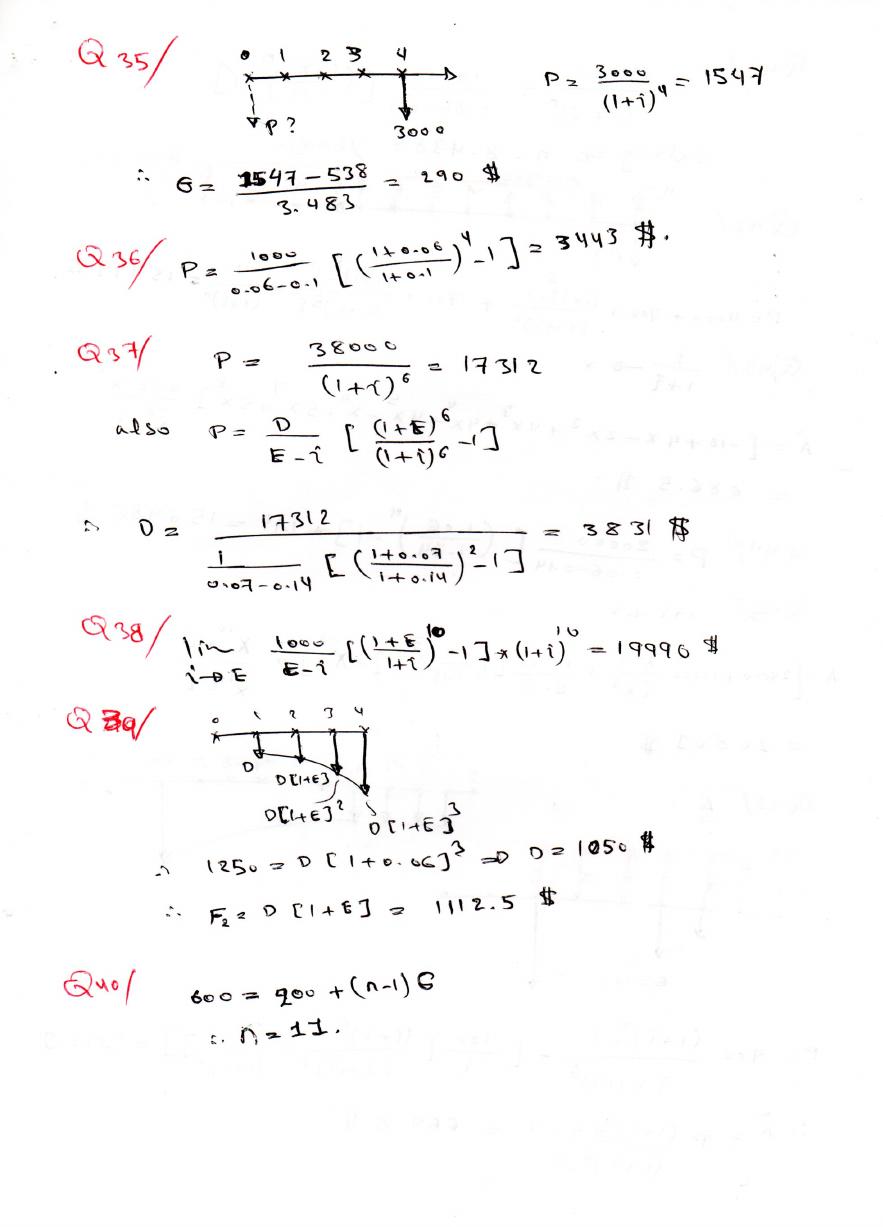 Q 35/
0 1 2 3 4
P = 3000 / (1+i)^4 = 1547
P ?
3000
∴ G = 1547 - 538 / 3.483 = 290 $
Q 36/ P = 1000 / 0.06-0.1 [ ( 1+0.06 / 1+0.1 )^4 -1 ] = 3443 $.
Q 37/ P = 38000 / (1+i)^6 = 17312
also P = D / E-i [ (1+E)^6 / (1+i)^6 -1 ]
∴ D = 17312 / 1 / 0.07-0.14 [ ( 1+0.07 / 1+0.14 )^2 -1 ] = 3831 $
Q 38/ lim i→E 1000 / E-i [ ( 1+E / 1+i )^10 -1 ] * (1+i)^10 = 19990 $
Q 39/
0 1 2 3 4
D
D[1+E]
D[1+E]^2
D[1+E]^3
∴ 1250 = D [ 1+0.06 ]^3 ⇒ D = 1050 $
∴ F2 = D [1+E] = 1112.5 $
Q40/ 600 = 900 + (n-1) G
∴ n = 11.